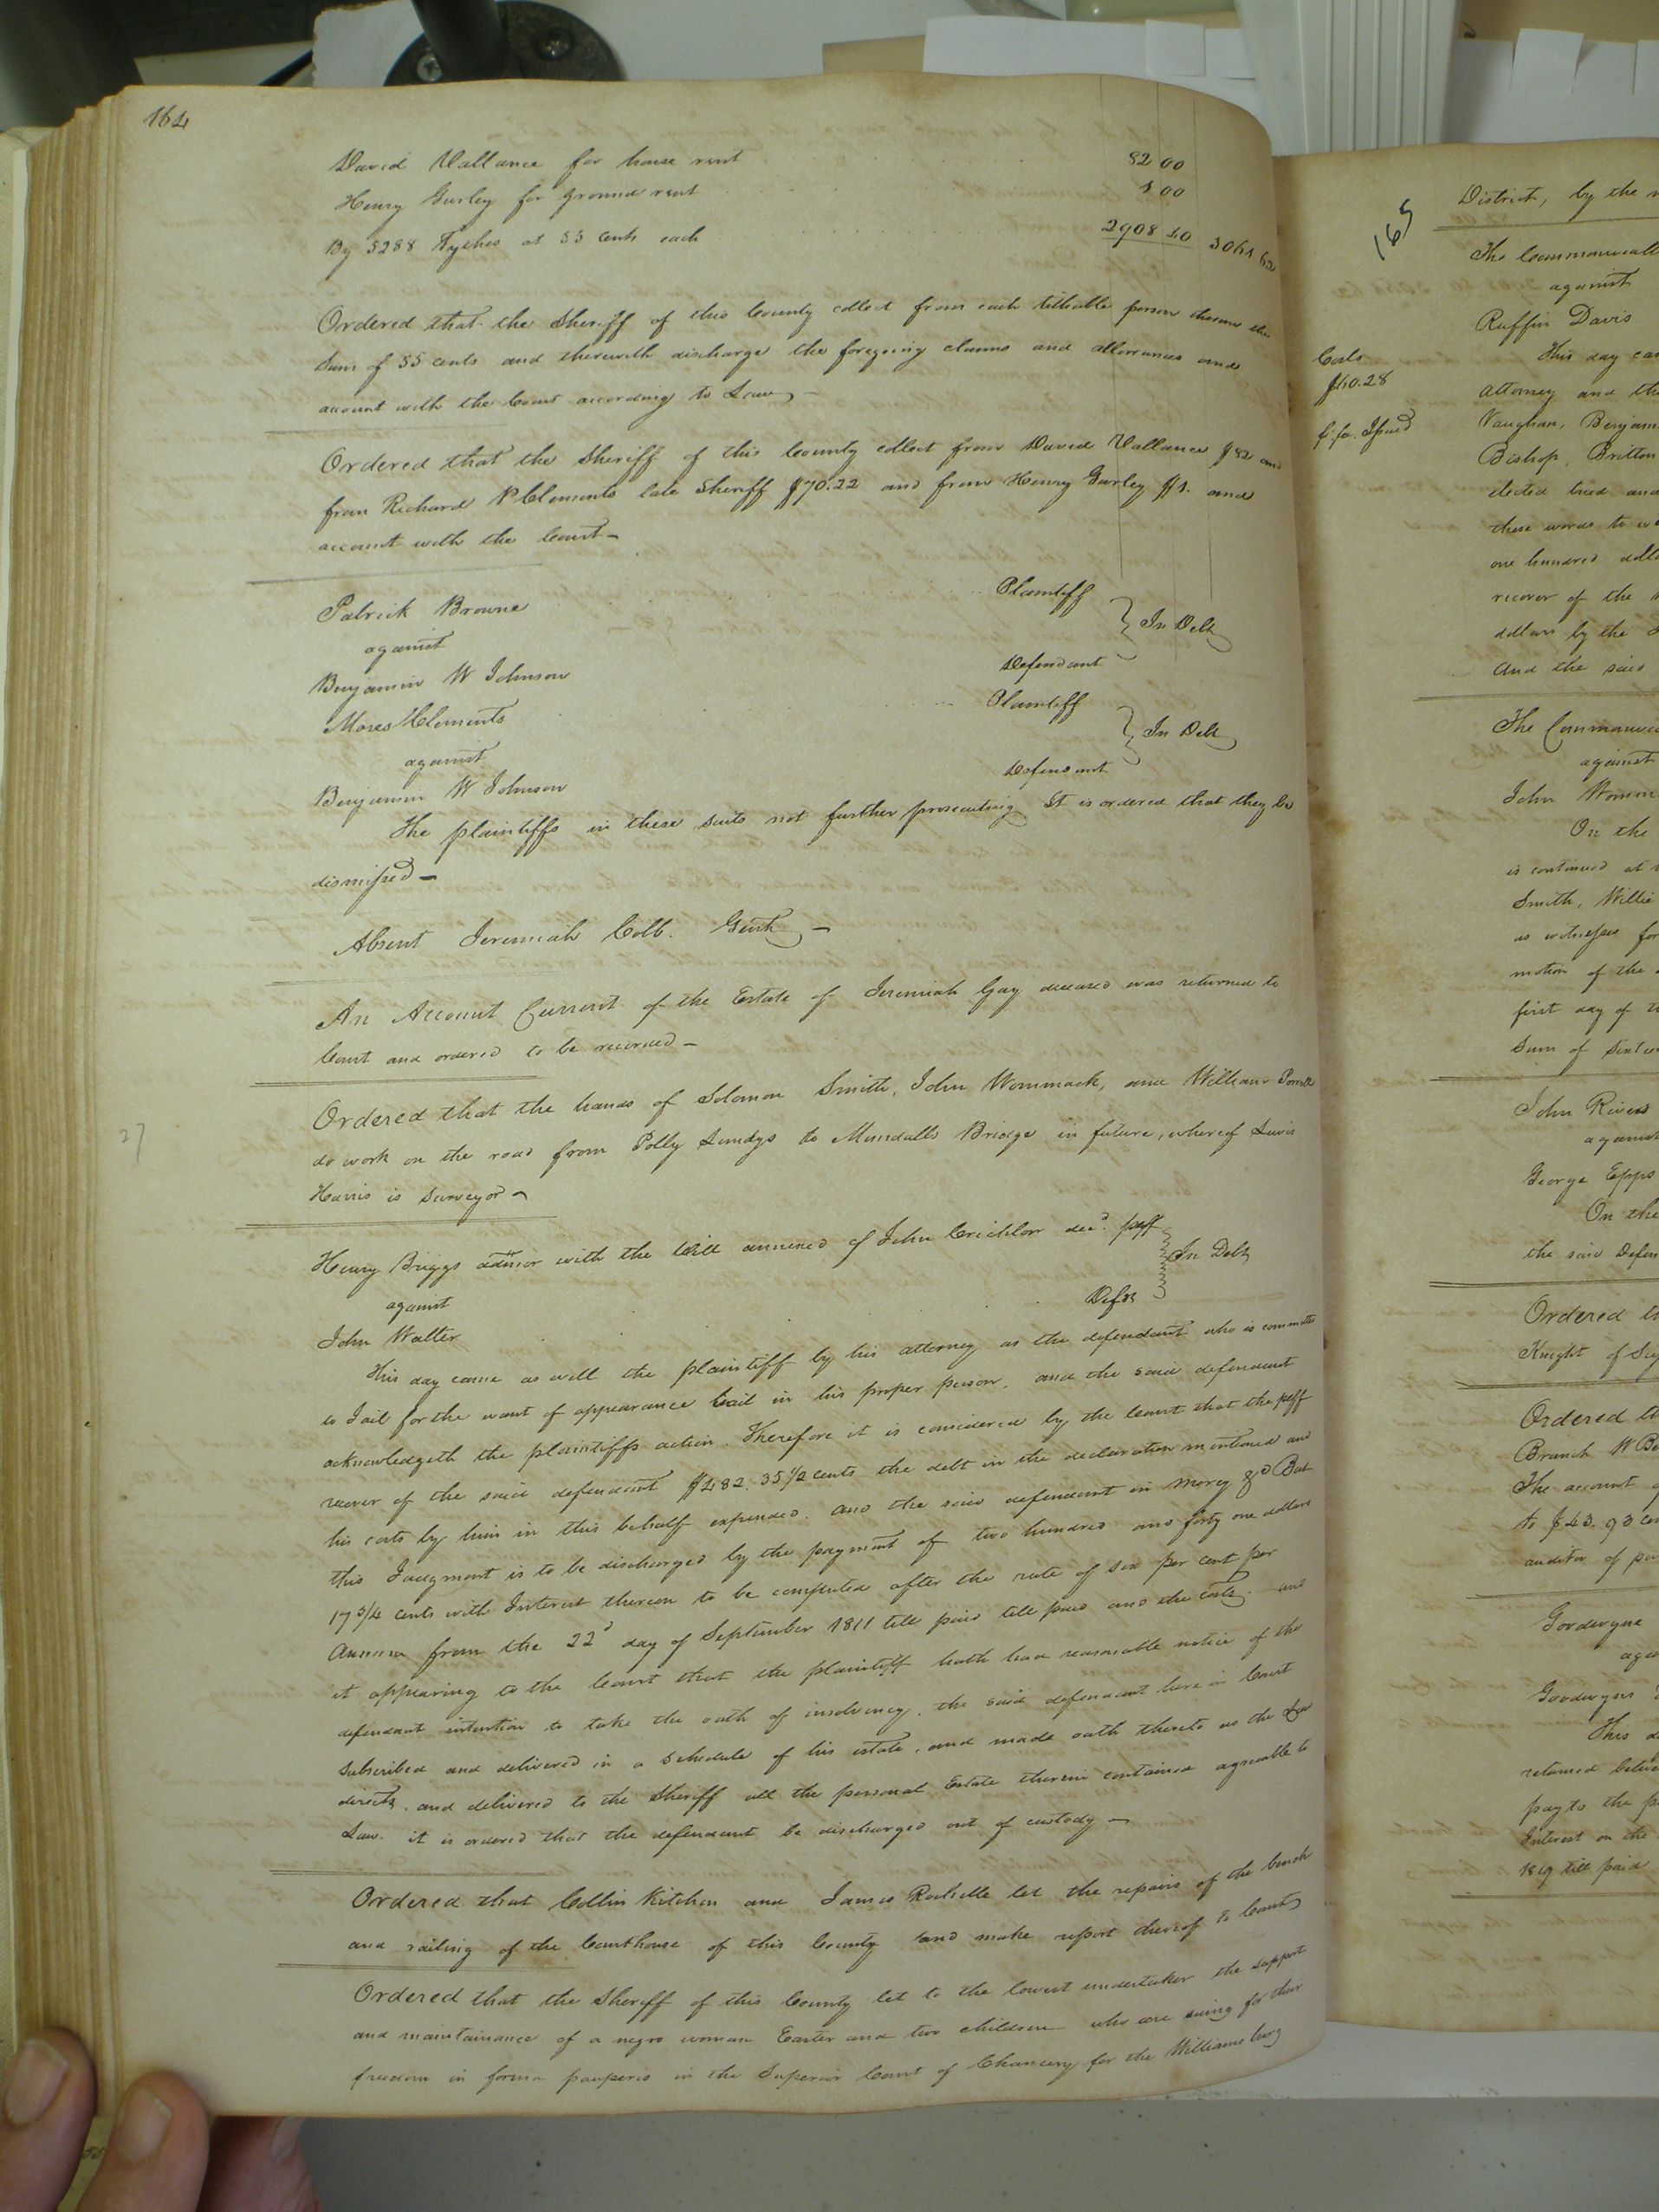 164
David Vallance for house rent 82 00
Henry Gurley for Ground rent 1 00
By 5288 Tythes at 55 cents each 2908 40 3061 62
Ordered that the Sheriff of this County collect from each titheable person therein the
Sum of 55 cents and therewith discharge the foregoing claims and allowances and
account with the Court according to Law
Ordered that the Sheriff of this County collect from David Vallance $82 and
from Richard P Clements late Sheriff $70.22 and from Henry Gurley $1. and
account with the Court
Patrick Browne Plaintiff
against In Debt
Benjamin W Johnson Defendant
Moses Clements Plaintiff
against In Debt
Benjamin W Johnson Defendant
The plaintiffs in these suits not further prosecuting It is ordered that they be
dismissed
Absent Jeremiah Cobb. Gent
An Account Current of the Estate of Jeremiah Gay deceased was returned to
Court and ordered to be recorded
Ordered that the hands of Solomon Smith, John Wommack, and William
do work on the road from Polly Lundys to Mundalls Bridge in future, whereof Lewis
Harris is Surveyor
27
Henry Briggs admor with the Will annexed of John Crichlow decd. plff
against In Debt
John Walter Defdt
This day came as well the plaintiff by his attorney as the defendant who is committed
to Jail for the want of appearance bail in his proper person, and the said defendant
acknowledgeth the plaintiffs action. Therefore it is considered by the Court that the plff
recover of the said defendant $482.35 1/2 cents the debt in the declaration mentioned and
his costs by him in this behalf expended. and the said defendant in mercy &c But
this Judgment is to be discharged by the payment of two hundred and forty one dollars
17 3/4 cents with Interest thereon to be computed after the rate of six per cent per
Annum from the 22d day of September 1811 till paid till paid and the costs. and
it appearing to the Court that the plaintiff hath had reasonable notice of the
defendant intention to take the oath of insolvency, the said defendant here in Court
subscribed and delivered in a schedule of his estate, and made oath thereto as the Law
directs, and delivered to the Sheriff all the personal Estate therein contained agreeable to
Law. it is ordered that the defendant be discharged out of custody
Ordered that Collin Kitchen and James Rochelle let the repairs of the bench
and railing of the Courthouse of this County and make report thereof to Court
Ordered that the Sheriff of this County let to the lowest undertaker the support
and maintainance of a negro woman Easter and two children who are suing for their
freedom in forma pauperis in the Superior Court of Chancery for the Williamsburg
165
District, by the
The Commonwealth
against
Ruffin Davis
Costs
$40.28
fi. fa. Issued
This day
attorney and
Vaughan,
Bishop, Britton
elected tried and
these words to
one hundred
recover of the
dollars by the
And the said
The
against
John
On the
is continued at
Smith, Willie
as witnesses for
motion of the
first day of
Sum of
John Rives
against
George Epps
On the
the said
Ordered
Knight of
Ordered
Branch W
The account
to $43.93
auditor of
Gordwyne
Goodwyns
This
returned
pay to the
Interest on the
1819 till paid